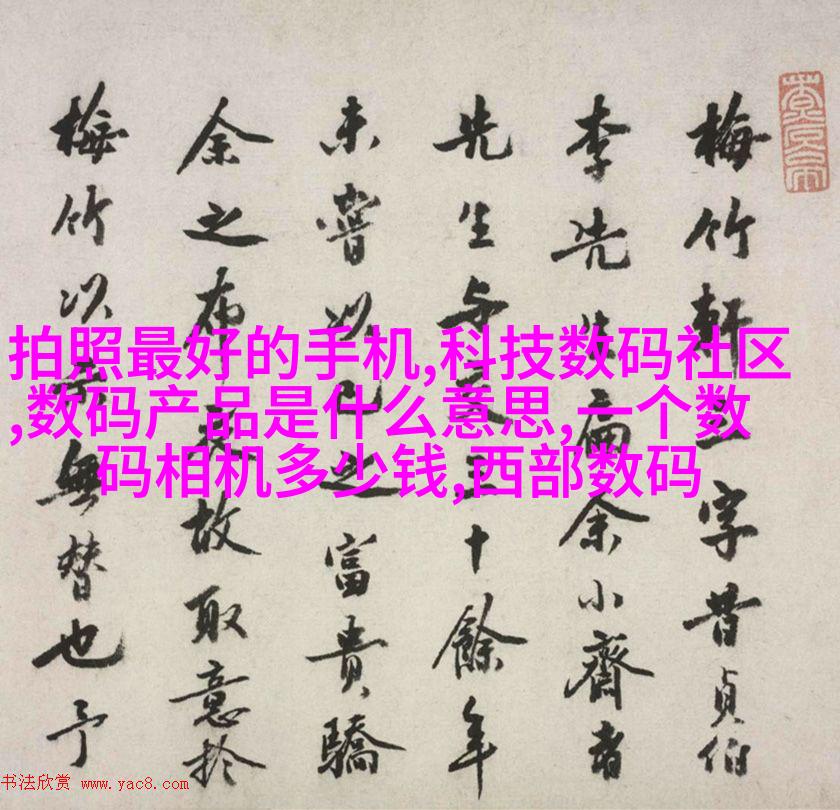 梅竹軒三字昔貞伯
李先生扁余小齋者
先生与交三十餘年
未嘗以己之富貴驕
余之布衣故取意於
梅竹以無替也予
拍照最好的手机,科技数码社区
,数码产品是什么意思,一个数
码相机多少钱,西部数码
书法欣赏 www.yac8.com